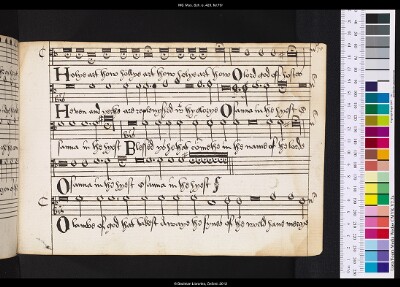 Holye art thow holye art thow holye art thow O lord god of hostes
Heven and yerth are replenished wt thy glorye Osanna in the hyest O
sanna in the hyest Blessed ys he that cometh in the name of the lorde
Osanna in the hyest Osanna in the hyest
O lambe of god that takest awaye the synes of the world have mercye
© Bodleian Libraries, Oxford, 2012